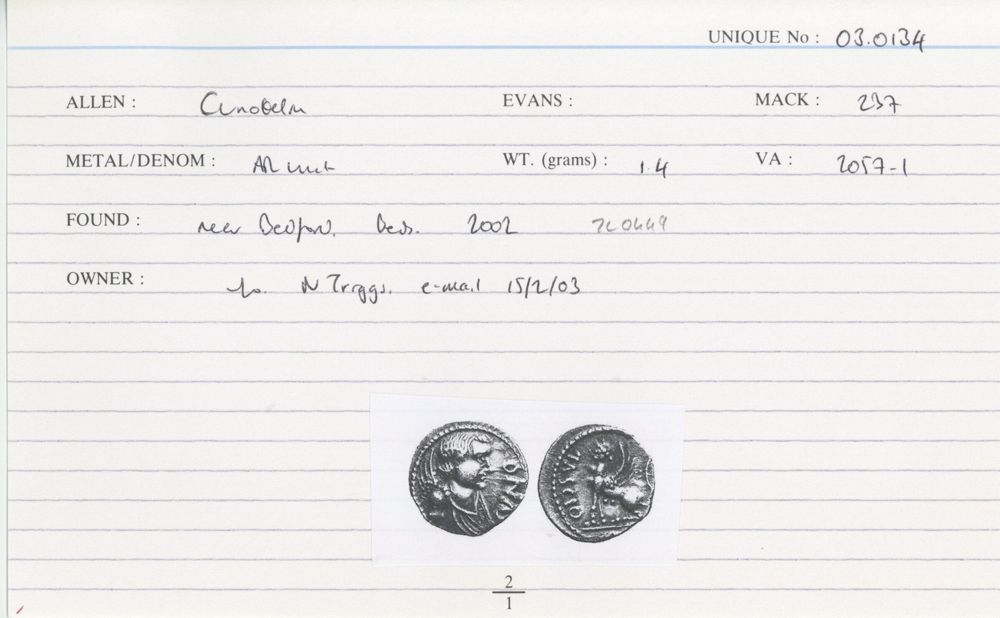 UNIQUE No : 03.0134
ALLEN : Cunobelin EVANS : MACK : 237
METAL/DENOM : AR unit WT. (grams) : 1.4 VA : 2057-1
FOUND : near Bedford. Beds. 2002 TL0449
OWNER : N Triggs. e-mail 15/2/03
2
1